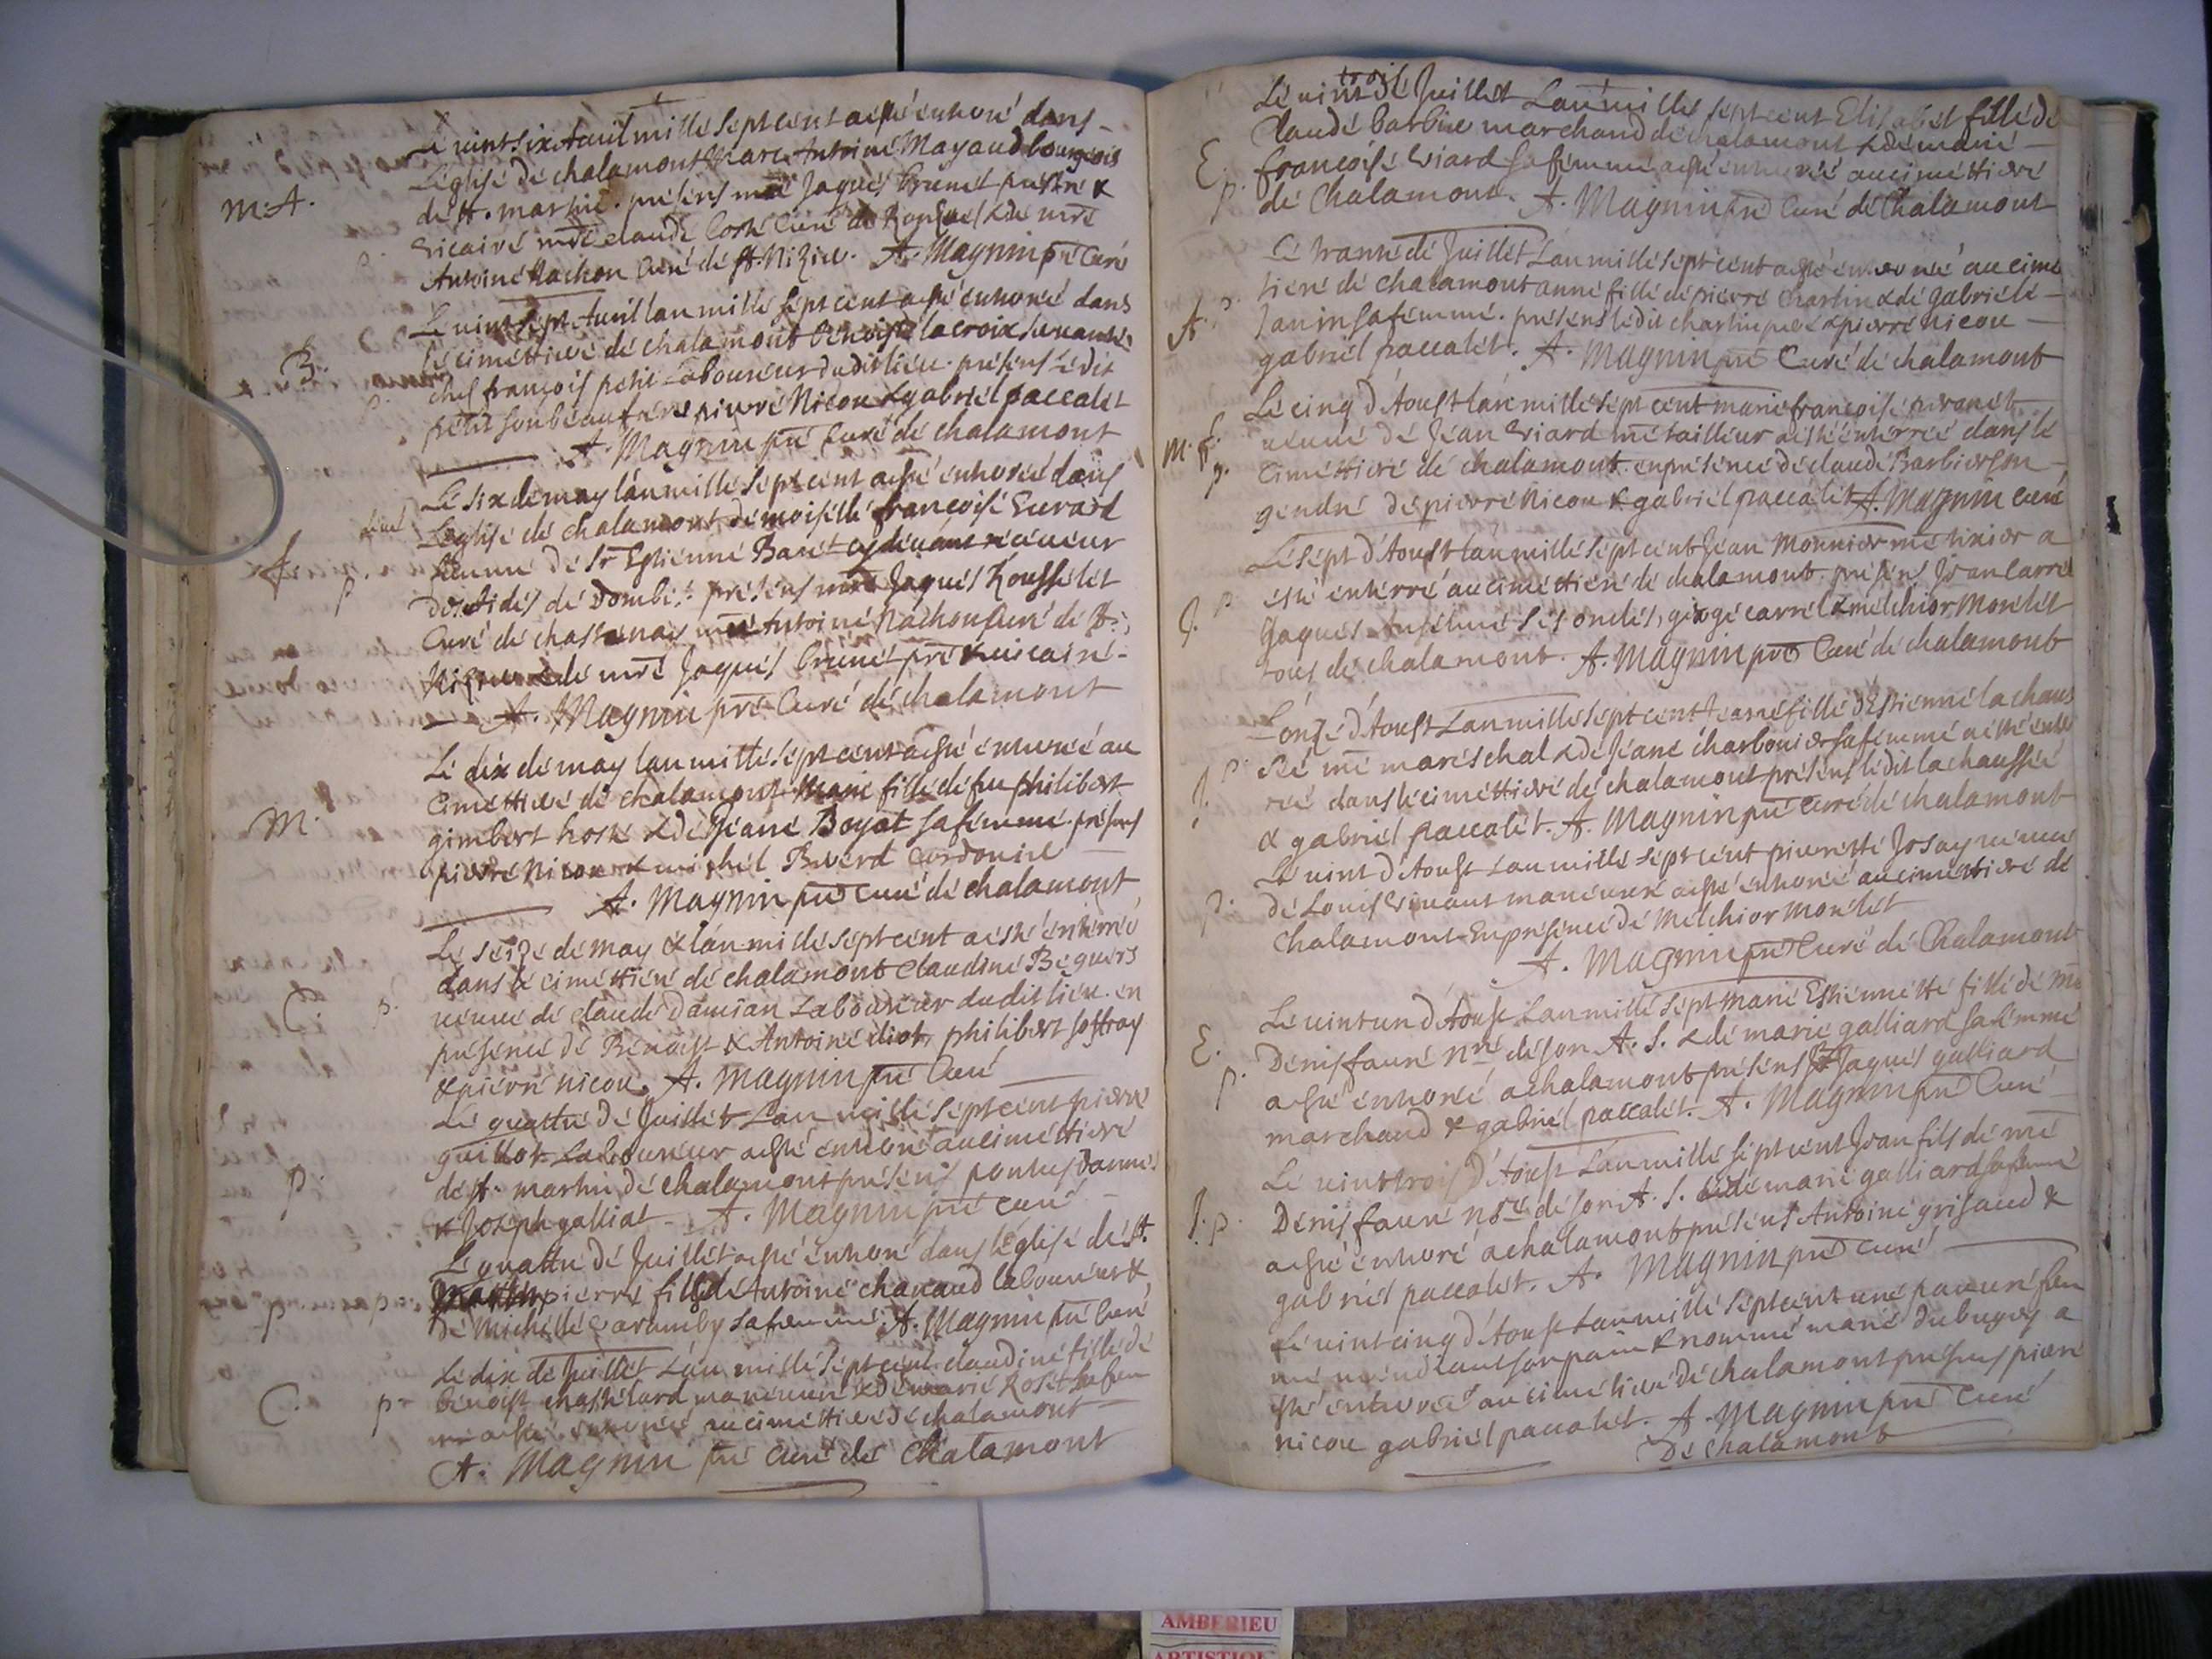 Le vint six Avril mille sept cent a esté enterré dans
L'église de chalamont Marc Antoine Mayaud bourgeois
m. A.
de st. martin. présens mre Jaques brunet prestre &
vicaire mre claude Coste Curé de & de mre
Antoine Rachon Curé de st. Nizier. A. Magnin pre Curé
Le vint sept Avril lan mille sept cent a esté enterrée dans
le cimettiere de chalamont benoiste lacroix servante
B.
chés françois petit Laboureur dudit lieu. présens Ledit
petit son beaufrere pierre Nicou & gabriel paccalet
A. Magnin pre Curé de chalamont
Le six de may lan mille sept cent a esté enterrée dans
L'église de chalamont démoiselle françoise Evrard
f. p.
femme de Sr Estienne Baret cy devant réceveur
des Aides de Dombes présens mre Jaques Rousselet
Curé de chastenay mre Antoine Rachon Curé de st.
Nizier & de mre Jaques brunet pre & vicaire
A. Magnin pre Curé de chalamont
Le dix de may lan mille sept cent a esté enterrée au
Cimettiere de chalamont Marie fille de feu philibert
M.
gimbert hoste & de Jeane Boyat sa femme. présens
pierre Nicou & michel Cordonier
A. Magnin pre Curé de chalamont
Le seize de may lan mille sept cent a esté enterrée
dans le cimettiere de chalamont Claudine Beguers
C. p.
veuve de claude Damian Laboureur dudit lieu. en
présence de Benoist & Antoine diot, philibert
& pierre nicou. A. Magnin pre Curé
Le quattre de Juillet Lan mille sept cent pierre
guillot Laboureur a esté enterré au cimettiere
p.
de st. martin de chalamont présens
& Joseph galliat A. Magnin pre Curé
Le quattre de Juillet a esté enterré dans l'église de st.
Martin pierre fille de Antoine chanaud laboureur &
p
de Michelle sa femme. A. Magnin pre Curé
Le dix de Juillet Lan mille sept cent claudine fille de
C. p
benoist chastelard manouvrier & de marie Roset sa fem
me a esté enterrée au cimettiere de chalamont
A. Magnin pre Curé de Chalamont
Le vint trois de Juillet Lan mille sept cent Elisabet fille de
Claude barbier marchand de chalamont & de marie
E. p.
françoise Viard sa femme a esté enterrée au cimettiere
de Chalamont. A. Magnin pre Curé de Chalamont
Le trante de Juillet Lan mille sept cent a esté enterrée au cime
tiere de chalamont anne fille de pierre Charlin & de gabriele
A. p.
Janin sa femme. présens ledit charlin pere & pierre nicou
gabriel paccalet. A. Magnin pre Curé de chalamont
Le cinq d'Aoust lan mille sept cent marie françoise
M. f. p.
veuve de Jean Viard me tailleur a esté enterrée dans le
Cimettiere de chalamont. en présence de claude Barbier son
gendre de pierre Nicou & gabriel paccalet A. Magnin curé
Le sept d'Aoust lan mille sept cent Jean Monnier me tixier a
J. p.
esté enterré au cimettiere de chalamont. présens Jean Carrel
Jaques Anselme ses oncles, george carrel & melchior Morélet
tous de chalamont. A. Magnin pre Curé de chalamont
L'onze d'Aoust Lan mille sept cent Jeane fille d'Estienne la chaus
J. p.
sée me maréschal & de Jeane charbonier sa femme a esté enter
rée dans le cimettiere de chalamont présens ledit la chaussée
& gabriel paccalet. A. Magnin pre Curé de chalamont
Le vint d'Aoust Lan mille sept cent pierrette Josay veuve
p.
de Louis Vivant manouvrier a esté enterrée au cimettiere de
Chalamont En présence de Melchior Morélet
A. Magnin pre Curé de Chalamont
Le vint un d'Aoust Lan mille sept Marie Estiennette fille de me
E. p.
Denis faure nre de son A. S. & de marie galliard sa femme
a esté enterrée a chalamont présens Jaques galliard
marchand & gabriel paccalet. A. Magnin pre Curé
Le vint trois d'Aoust Lan mille sept cent Jean fils de me
J. p.
Denis faure nore de son A. S. & de marie galliard sa femme
a esté enterré a chalamont présens Antoine grisaud &
gabriel paccalet. A. Magnin pre curé
Le vint cinq d'Aoust Lan mille sept cent une pauvre fem
me mendiant son pain & nommé marie du bugey a
esté enterrée au cimetiere de chalamont présens pierre
nicou gabriel paccalet. A. Magnin pre Curé
de chalamont
AMBERIEU